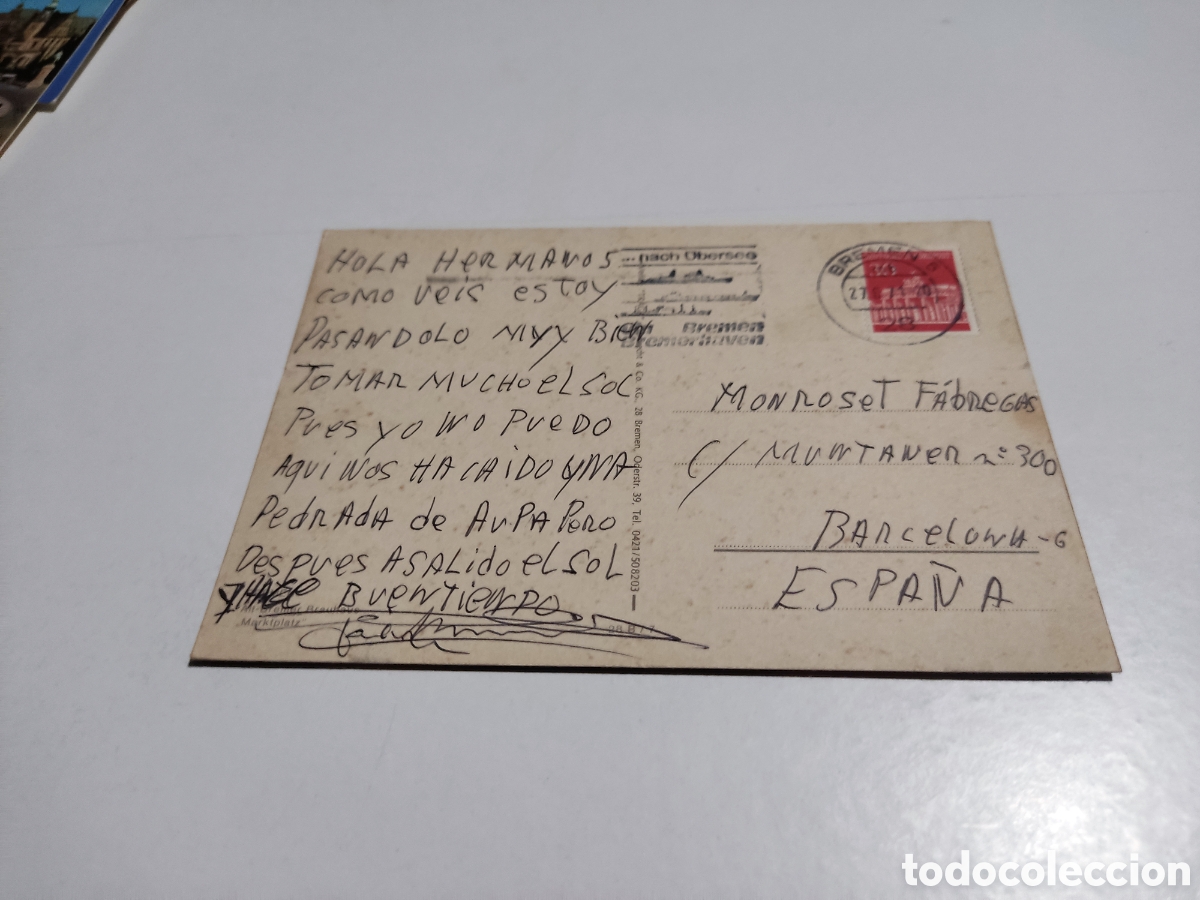 HOLA HERMANOS
COMO VEIS ESTOY
PASANDOLO MUY BIEN
TOMAR MUCHO EL SOL
PUES YO NO PUEDO
AQUI NOS HA CAIDO UNA
PEDRADA de AUPA PERO
DESPUES A SALIDO EL SOL
Y HACE BUENTIEMPO
Marktplatz
28 B / 7
& Co. KG., 28 Bremen, Oderstr. 39, Tel. 0421/508203
...nach Übersee
Bremen
Bremerhaven
BREMEN
MONROSET FÁBREGAS
C/ MUNTANER nº 300
BARCELONA-6
ESPAÑA
todocoleccion